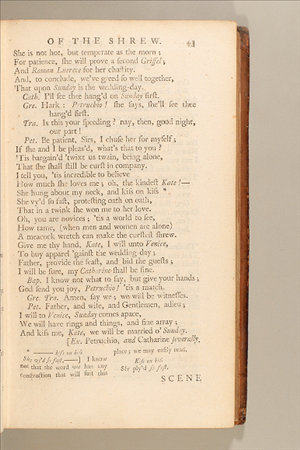 OF THE SHREW. 43
She is not hot, but temperate as the morn;
For patience, she will prove a second Grissel;
And Roman Lucrece for her chastity.
And, to conclude, we've greed so well together,
That upon Sunday is the wedding-day.
Cath. I'll see thee hang'd on Sunday first.
Gre. Hark: Petruchio! she says, she'll see thee
hang'd first.
Tra. Is this your speeding? nay, then, good night,
our part!
Pet. Be patient, Sirs, I chuse her for myself;
If she and I be pleas'd, what's that to you?
'Tis bargain'd 'twixt us twain, being alone,
That she shall still be curst in company.
I tell you, 'tis incredible to believe
How much she loves me; oh, the kindest Kate!—
She hung about my neck, and kiss on kiss *
She vy'd so fast, protesting oath on oath,
That in a twink she won me to her love.
Oh, you are novices; 'tis a world to see,
How tame, (when men and women are alone)
A meacock wretch can make the curstest shrew.
Give me thy hand, Kate, I will unto Venice,
To buy apparel 'gainst the wedding day;
Father, provide the feast, and bid the guests;
I will be sure, my Catharine shall be fine.
Bap. I know not what to say, but give your hands;
God send you joy, Petruchio! 'tis a match.
Gre. Tra. Amen, say we; we will be witnesses.
Pet. Father, and wife, and Gentlemen, adieu;
I will to Venice, Sunday comes apace,
We will have rings and things, and fine array;
And kiss me, Kate, we will be married o' Sunday.
[Ex. Petruchio, and Catharine severally.
* —— kiss on kiss
She vy'd so fast,——] I know
not that the word vie has any
construction that will suit this
place; we may easily read,
Kiss on kiss
She ply'd so fast.
SCENE